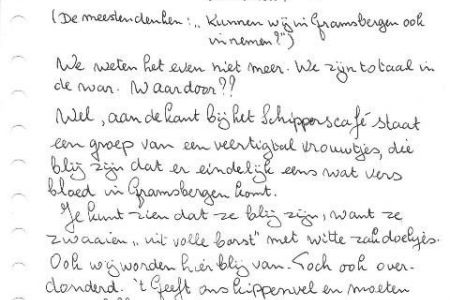 (De meesten denken: „Kunnen wij in Gramsbergen ook
innemen?")
We weten het even niet meer. We zijn totaal in
de war. Waardoor??
Wel, aan de kant bij het Schipperscafé staat
een groep van een veertigtal vrouwtjes, die
blij zijn dat er eindelijk eens wat vers
bloed in Gramsbergen komt.
Je kunt zien dat ze blij zijn, want ze
zwaaien „uit volle borst" met witte zakdoekjes.
Ook wij worden hier blij van. Toch ook over-
donderd. 't Geeft ons kippenvel en moeten